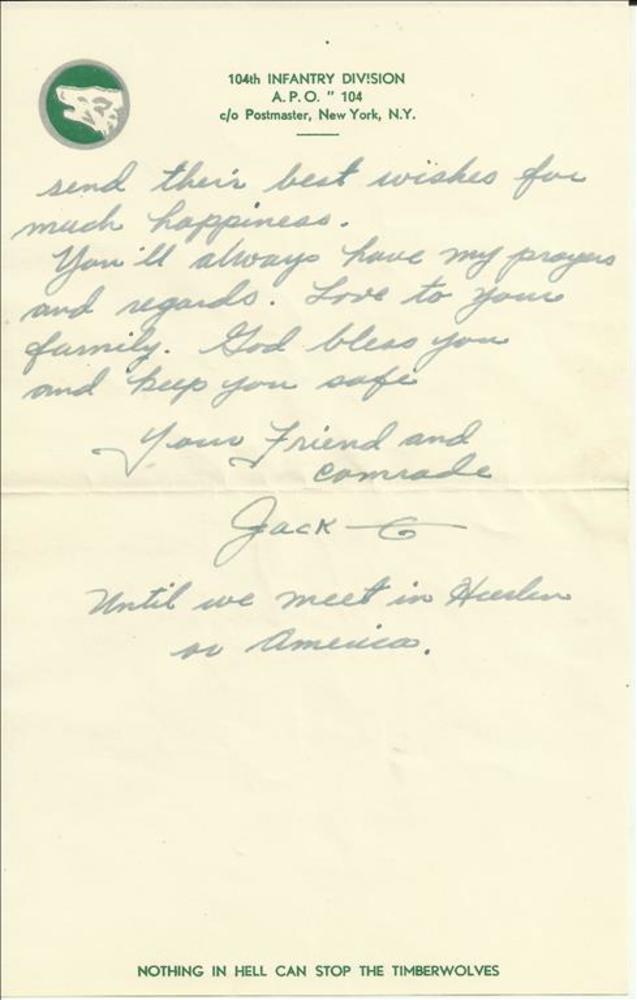 104th INFANTRY DIVISION
A.P.O. " 104
c/o Postmaster, New York, N.Y.
send their best wishes for
much happiness.
You'll always have my prayers
and regards. Love to your
family. God bless you
and keep you safe
Your Friend and
comrade
Jack G
Until we meet in
or America.
NOTHING IN HELL CAN STOP THE TIMBERWOLVES